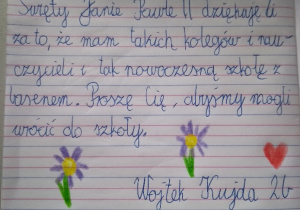 Święty Janie Pawle II dziękuję Ci
za to, że mam takich kolegów i nau-
czycieli i tak nowoczesną szkołę z
basenem. Proszę Cię, abyśmy mogli
wrócić do szkoły.
Wojtek Kujda 2b